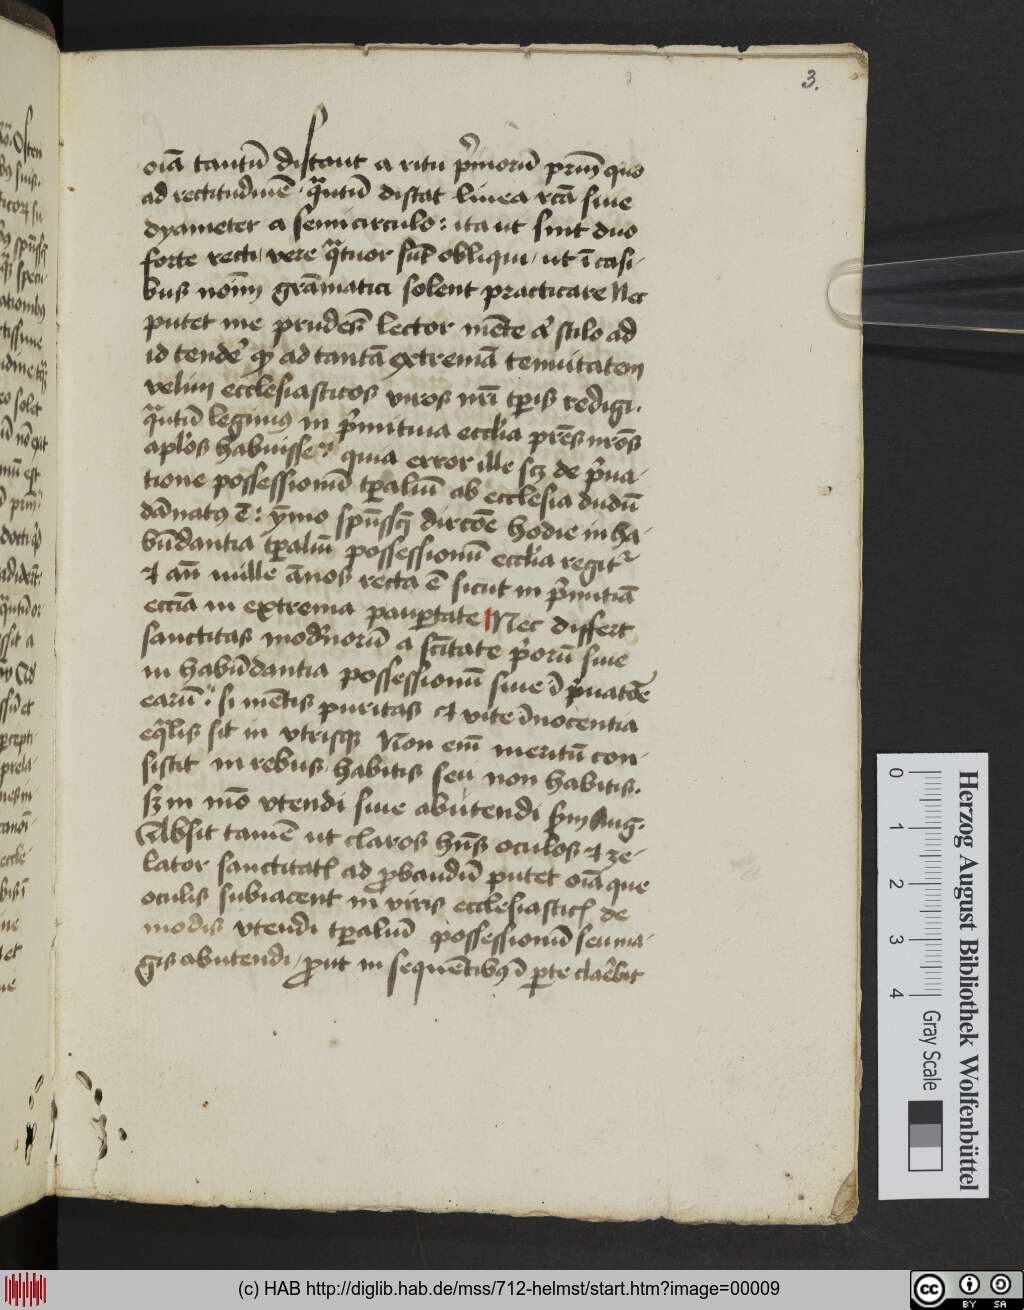 3.
oīa tantū distant a ritu p̄morū prīm quo
ad rectitudinē / qͣntū distat linea rcā siue
dyameter a semicirculo : ita ut sint duo
forte recti / vere qͣtuor sūt obliqui / ut ī casi-
bus noīm grāmatici solent practicare Nec
putet me prudēs lector mēte aꝰ stilo ad
id tendeꝰ qͥ ad tantā extremā tenuitatem
velim ecclesiasticos viros nrī tꝑis redigi.
qͣntū legimꝰ in pͥmitiua ecclīa prēs nrōs
aplōs habuisse : quia error ille scꝫ de pͥua-
tione possessionū tꝑaliū ab ecclesia dudū
dānatꝰ ē : ymo spūssctī dircōe hodie in ha-
būdantia tꝑaliū possessionū ecclīa regitᷣ
⁊ añ mille ānos recta ē sicut in pͥmitiā
ecciā in extrema pauꝑtate Nec differt
sanctitas modꝰnorū a sctītate pͥorū siue
in habūdantia possessionū siue ī pͥuatōe
earū : si mētis puritas ⁊ vite īnocentia
eq̄lis sit in vtrisqꝫ Non em̄ meritū con-
sistit in rebus habitis seu non habitis.
sꝫ in mō vtendi siue abutendi ẜm Aug.
Absit tamē ut claros hn̄s oculos ⁊ ze-
lator sanctitatꝭ ad ꝓbandū putet oīa que
oculis subiacent in viris ecclesiasticꝭ de
modis vtendi tꝑaliū possessionū seu ma-
gis abutendi / ꝓut in sequētibꝰ ī ꝑte claꝰebit
Herzog August Bibliothek Wolfenbüttel
0 1 2 3 4 Gray Scale
(c) HAB http://diglib.hab.de/mss/712-helmst/start.htm?image=00009
cc BY SA